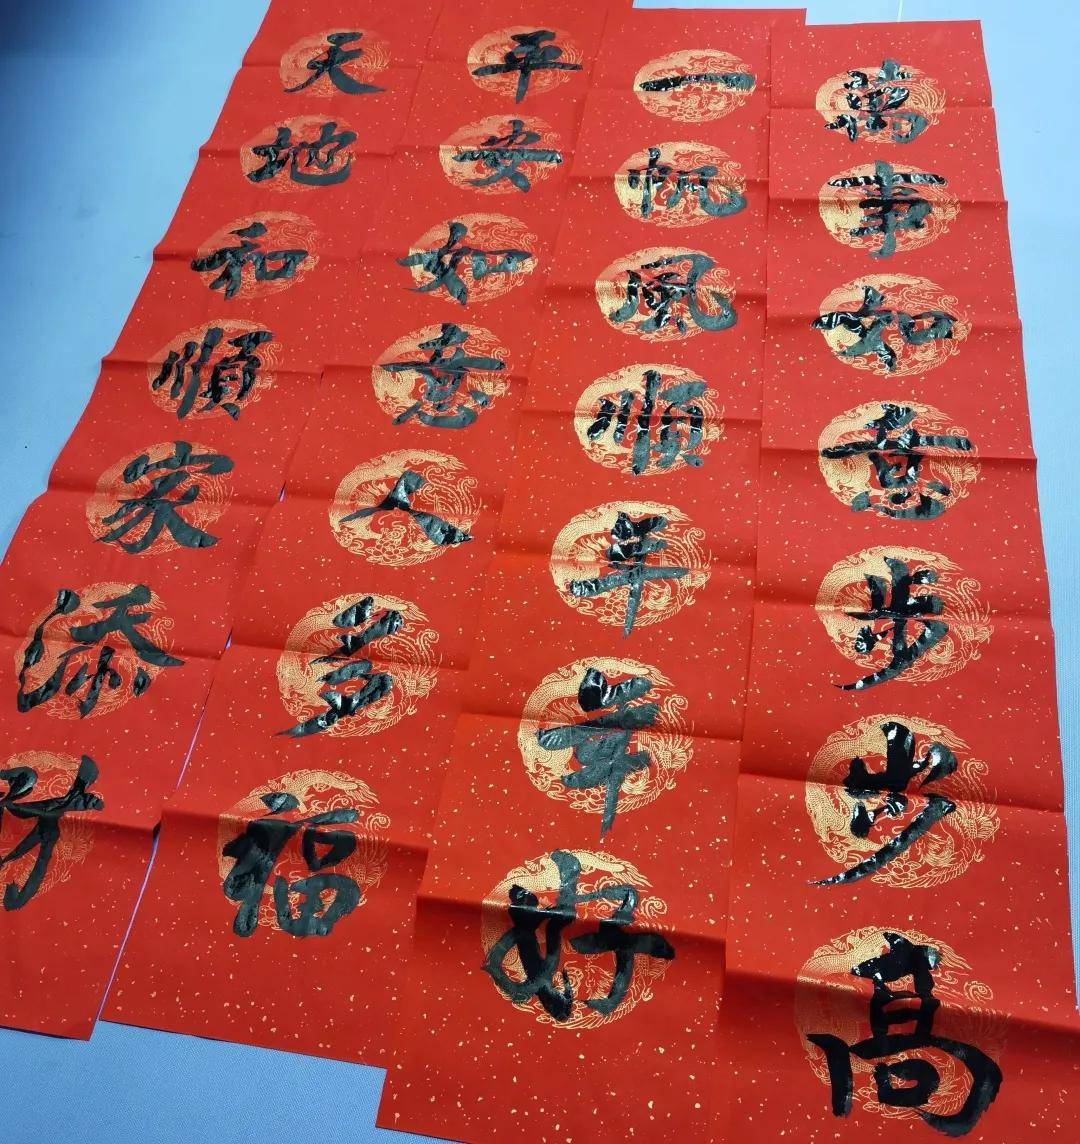 萬事如意步步高
一帆風順年年好
平安如意人多福
天地和順家添財